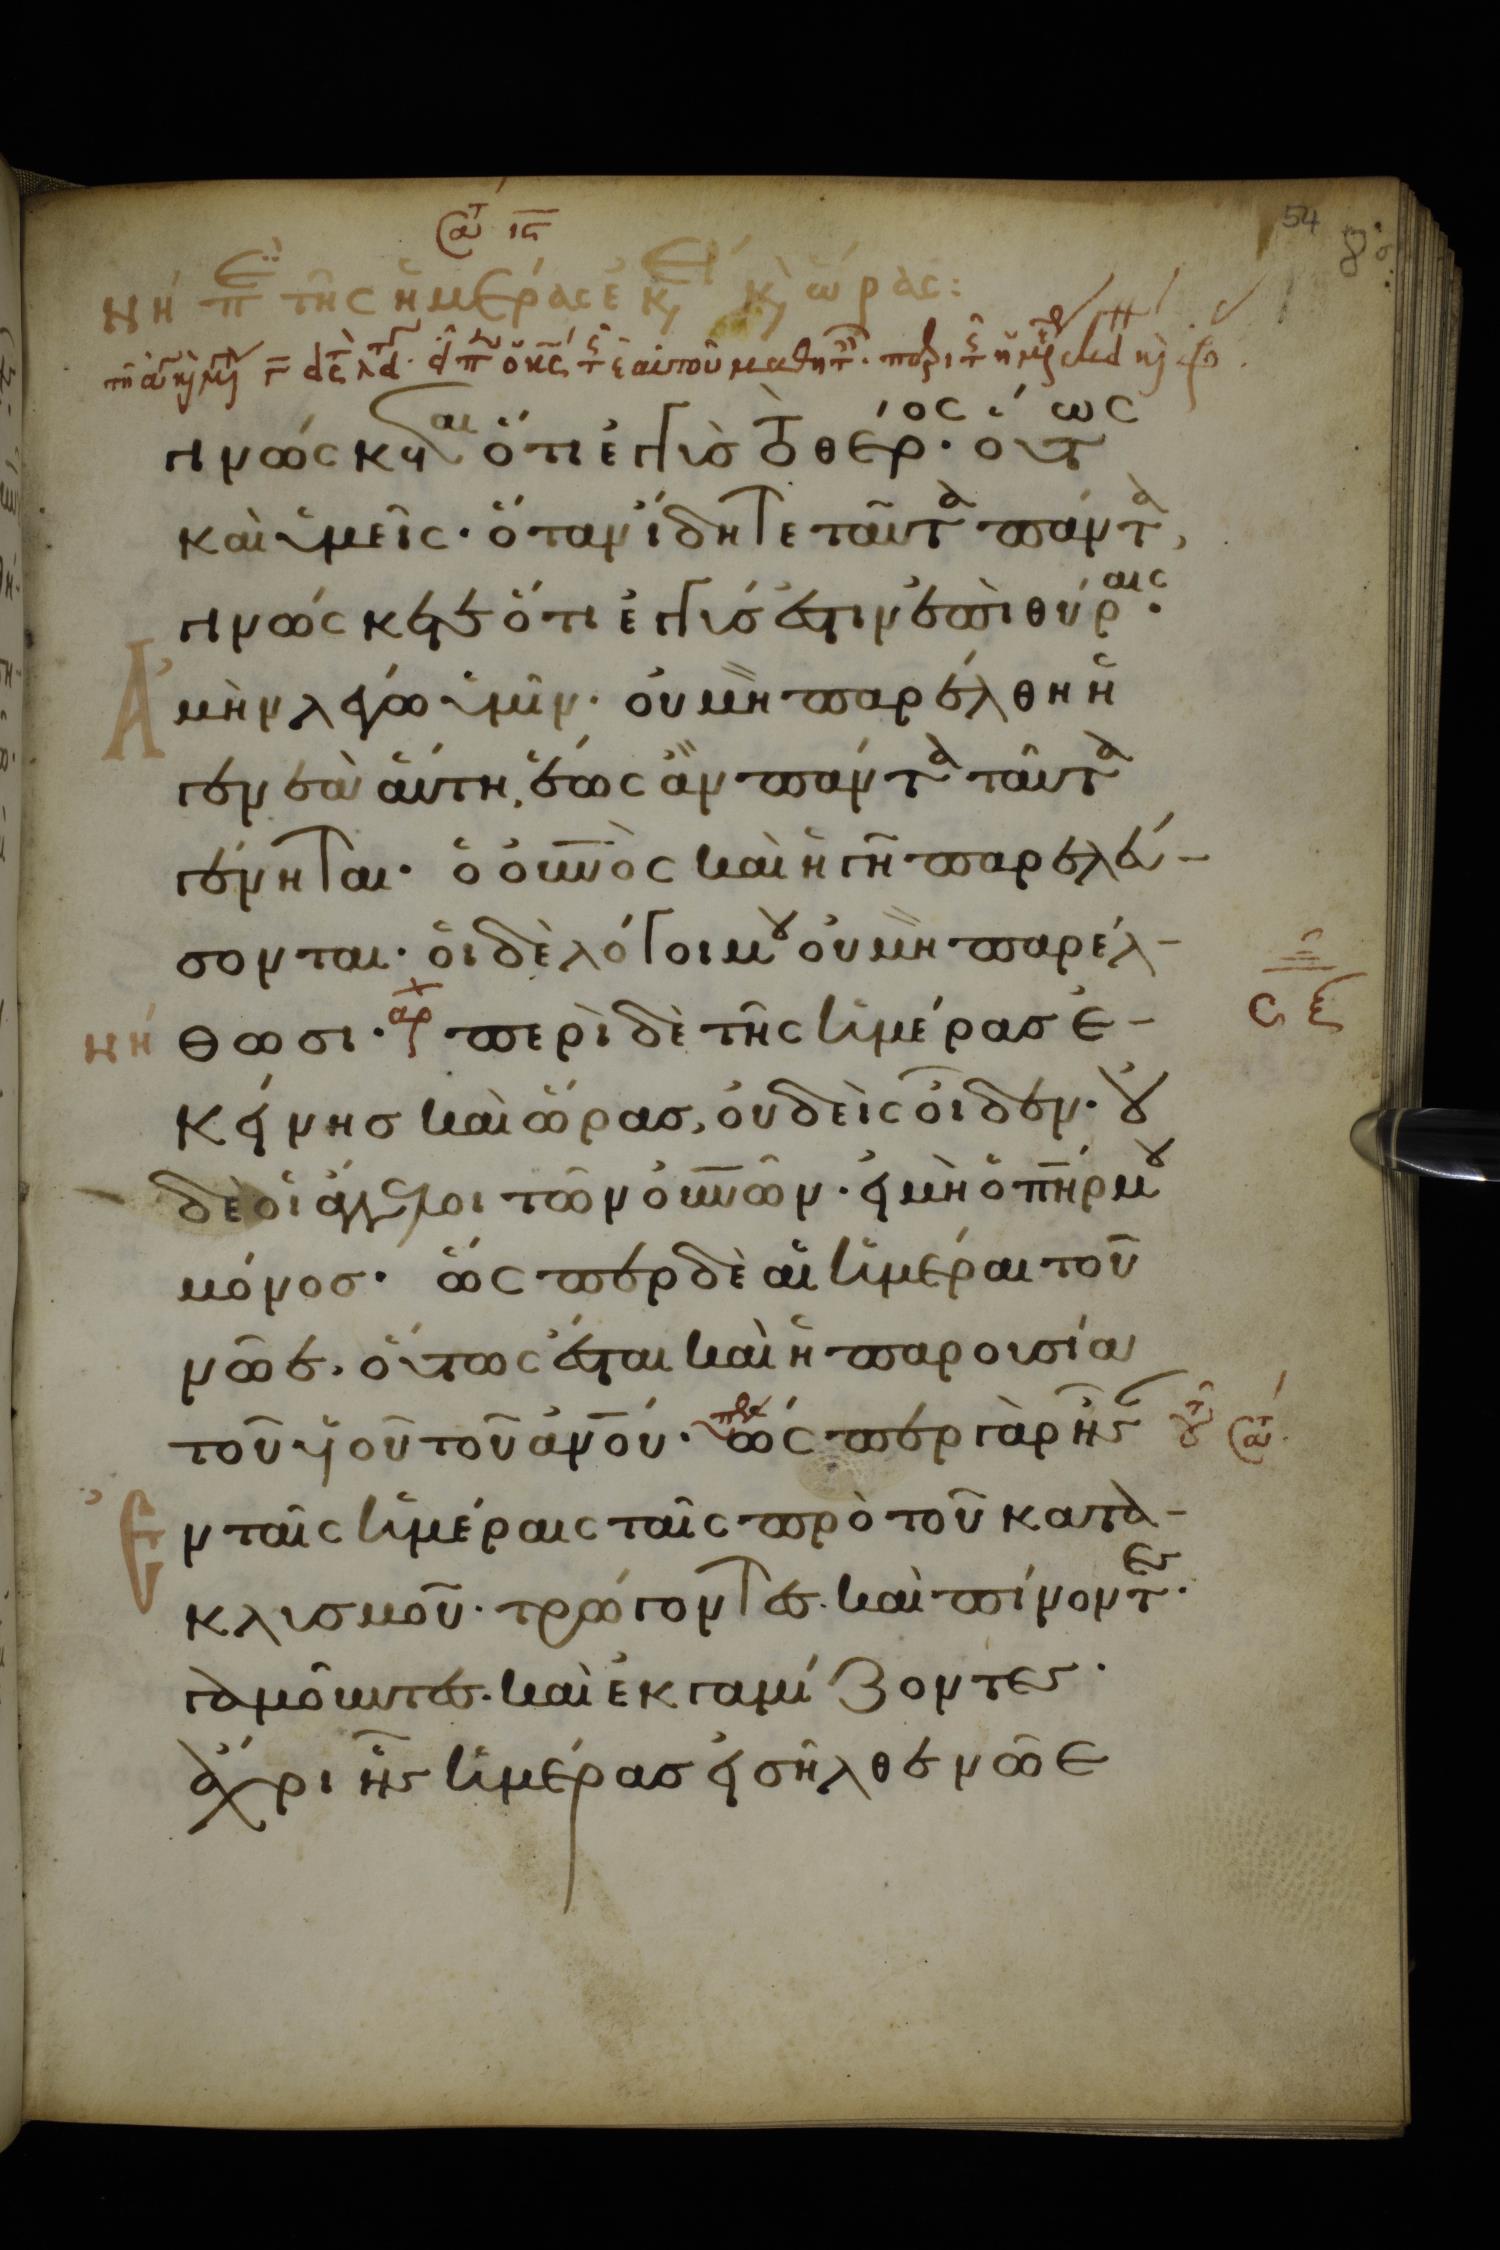 54
νη πε τῆς ἡμέρας ἐκει κ ὥρας:
γινώσκεται ὅτι ἐγγὺς τὸ θέρος· οὕτως
καὶ ὑμεῖς· ὅταν ἴδητε ταῦτα πάντα,
γινώσκετε ὅτι ἐγγύς ἐστιν ἐπὶ θύραις·
Ἀμὴν λέγω ὑμῖν· οὐ μὴ παρέλθη ἡ
γενεὰ αὕτη, ἕως ἂν πάντα ταῦτα
γένηται· ὁ οὐνὸς καὶ ἡ γῆ παρελεύ-
σονται· οἱ δὲ λόγοι μου οὐ μὴ παρέλ-
νη θωσι· αρχ περὶ δὲ τῆς ἡμέρας ἐ-
κείνης καὶ ὥρας, οὐδεὶς οἶδεν· οὐ
δὲ οἱ ἄγγελοι τῶν οὐνῶν· εἰ μὴ ὁ πηρ μου
μόνος· ὥσπερ δὲ αἱ ἡμέραι τοῦ
νῶε, οὕτως ἔσται καὶ ἡ παρουσία
τοῦ υἱοῦ τοῦ ἀνου· ὥσπερ γὰρ ἦσ
Ἐν ταῖς ἡμέραις ταῖς πρὸ τοῦ κατα-
κλυσμοῦ· τρώγοντες· καὶ πίνοντες·
γαμοῦντες· καὶ ἐκγαμίζοντες·
ἄχρι ἧς ἡμέρας εἰσῆλθε νῶε